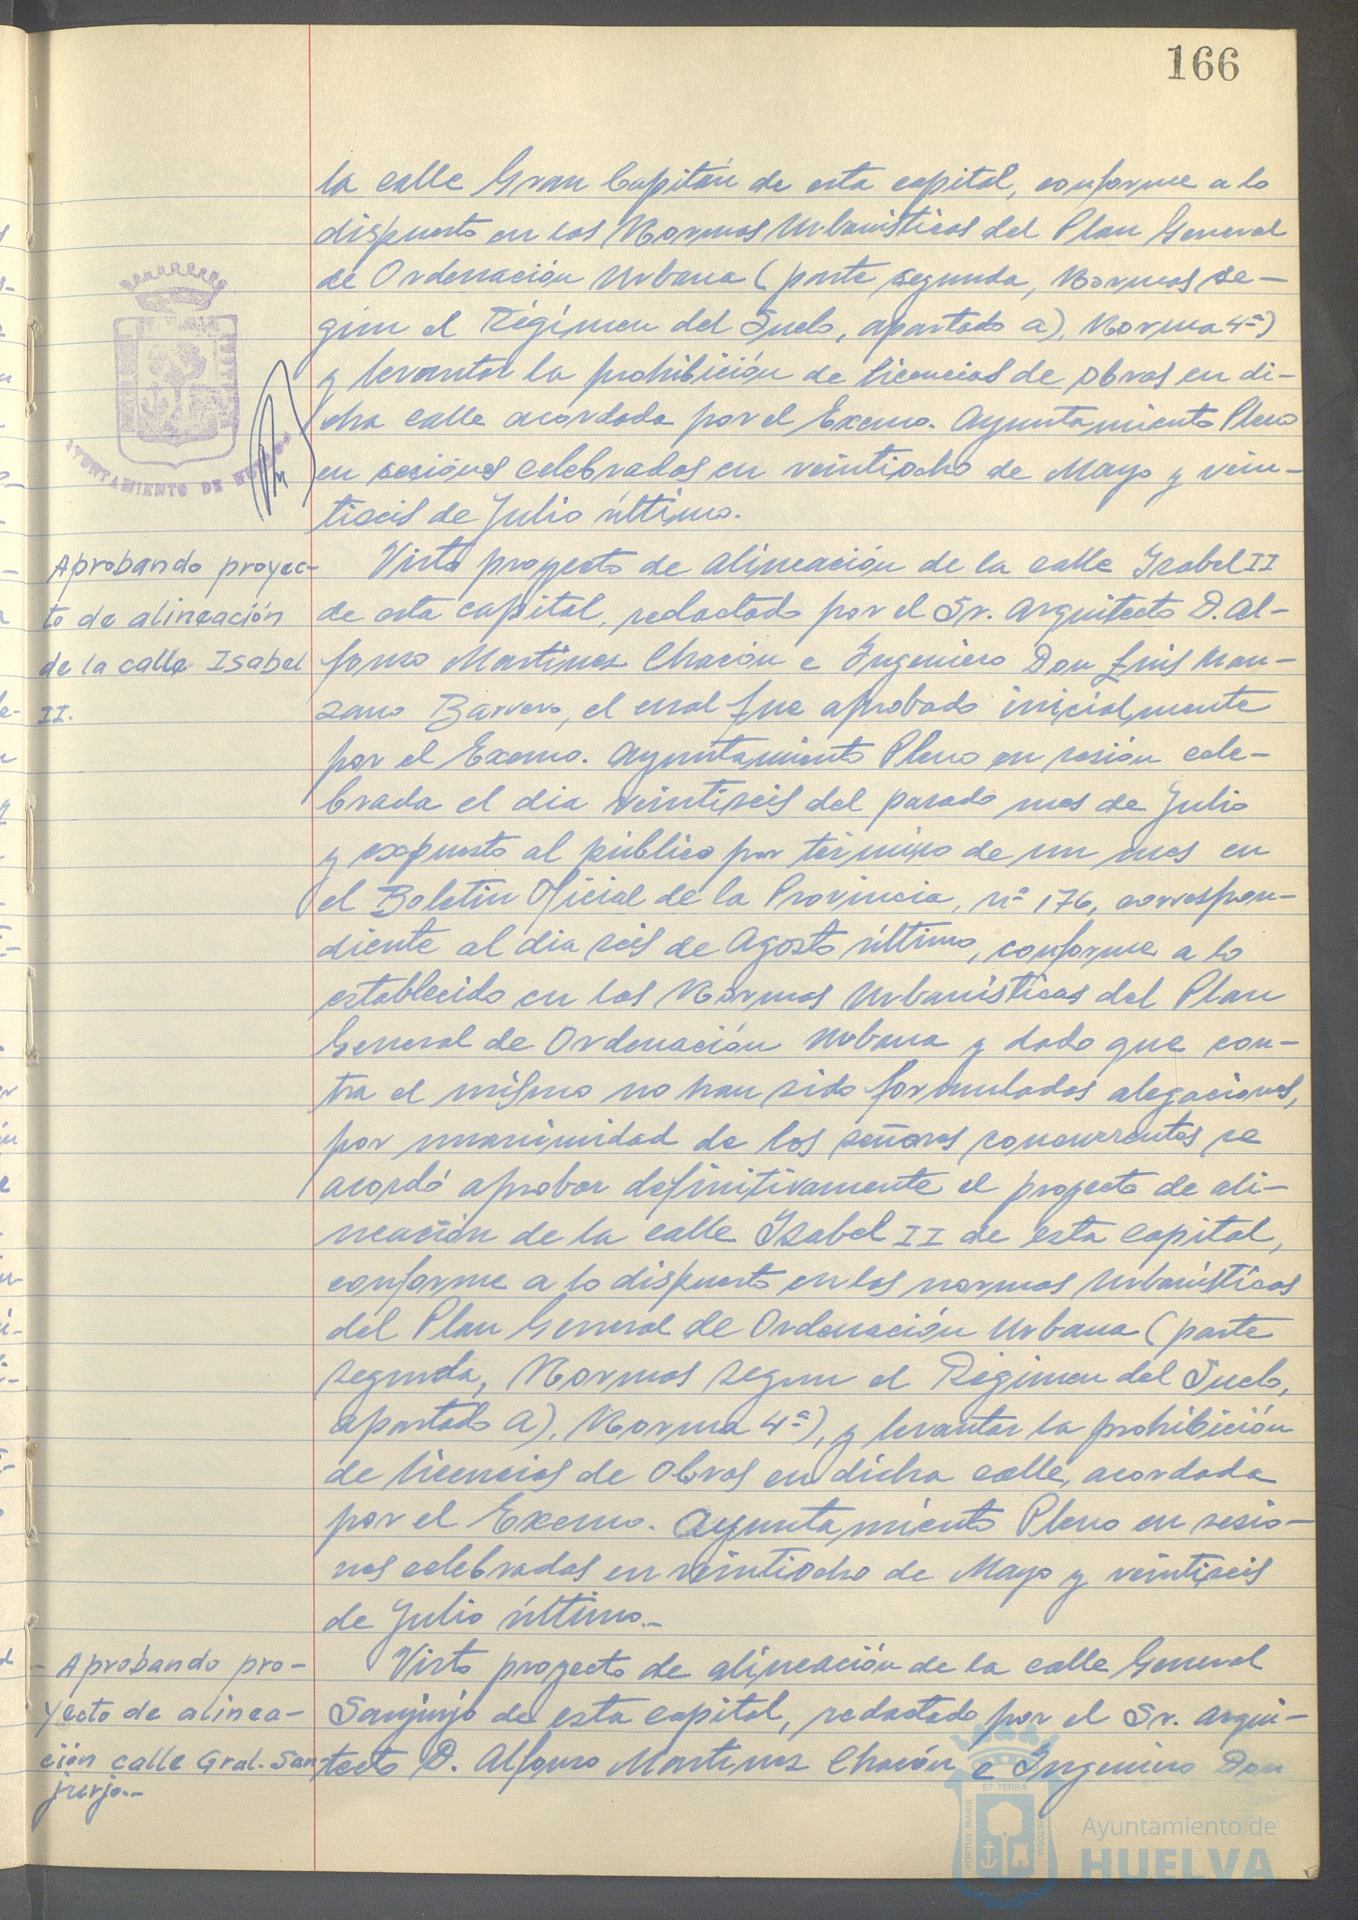 166
la calle Gran Capitán de esta capital, conforme a lo
dispuesto en las Normas Urbanísticas del Plan General
de Ordenación Urbana (parte segunda, Normas se-
gún el Régimen del Suelo, apartado a), Norma 4ª)
y levantar la prohibición de licencias de obras en di-
cha calle acordada por el Excmo. Ayuntamiento Pleno
en sesiones celebradas en veintiocho de Mayo y vein-
tiseis de Julio último.
AYUNTAMIENTO DE HUELVA
Aprobando proyec-
to de alineación
de la calle Isabel
II.
Visto proyecto de alineación de la calle Isabel II
de esta capital, redactado por el Sr. Arquitecto D. Al-
fonso Martinez Chacón e Ingeniero Don Luis Man-
zano Barrero, el cual fue aprobado inicialmente
por el Excmo. Ayuntamiento Pleno en sesión cele-
brada el dia veintiseis del pasado mes de Julio
y expuesto al público por término de un mes en
el Boletin Oficial de la Provincia, nº 176, correspon-
diente al dia seis de Agosto último, conforme a lo
establecido en las Normas Urbanísticas del Plan
General de Ordenación Urbana y dado que con-
tra el mismo no han sido formuladas alegaciones,
por unanimidad de los señores concurrentes se
acordó aprobar definitivamente el proyecto de ali-
neación de la calle Isabel II de esta capital,
conforme a lo dispuesto en las normas Urbanísticas
del Plan General de Ordenación Urbana (parte
segunda, Normas segun el Régimen del Suelo,
apartado A), Norma 4ª), y levantar la prohibición
de licencias de Obras en dicha calle, acordada
por el Excmo. Ayuntamiento Pleno en sesio-
nes celebradas en veintiocho de Mayo y veintiseis
de Julio último.-
- Aprobando pro-
yecto de alinea-
ción calle Gral. San
jurjo.-
Visto proyecto de alineación de la calle General
Sanjurjo de esta capital, redactado por el Sr. Arqui-
tecto D. Alfonso Martinez Chacón e Ingeniero Don
PORTUS MARIS
ET TERRA
CUSTODIA
Ayuntamiento de
HUELVA